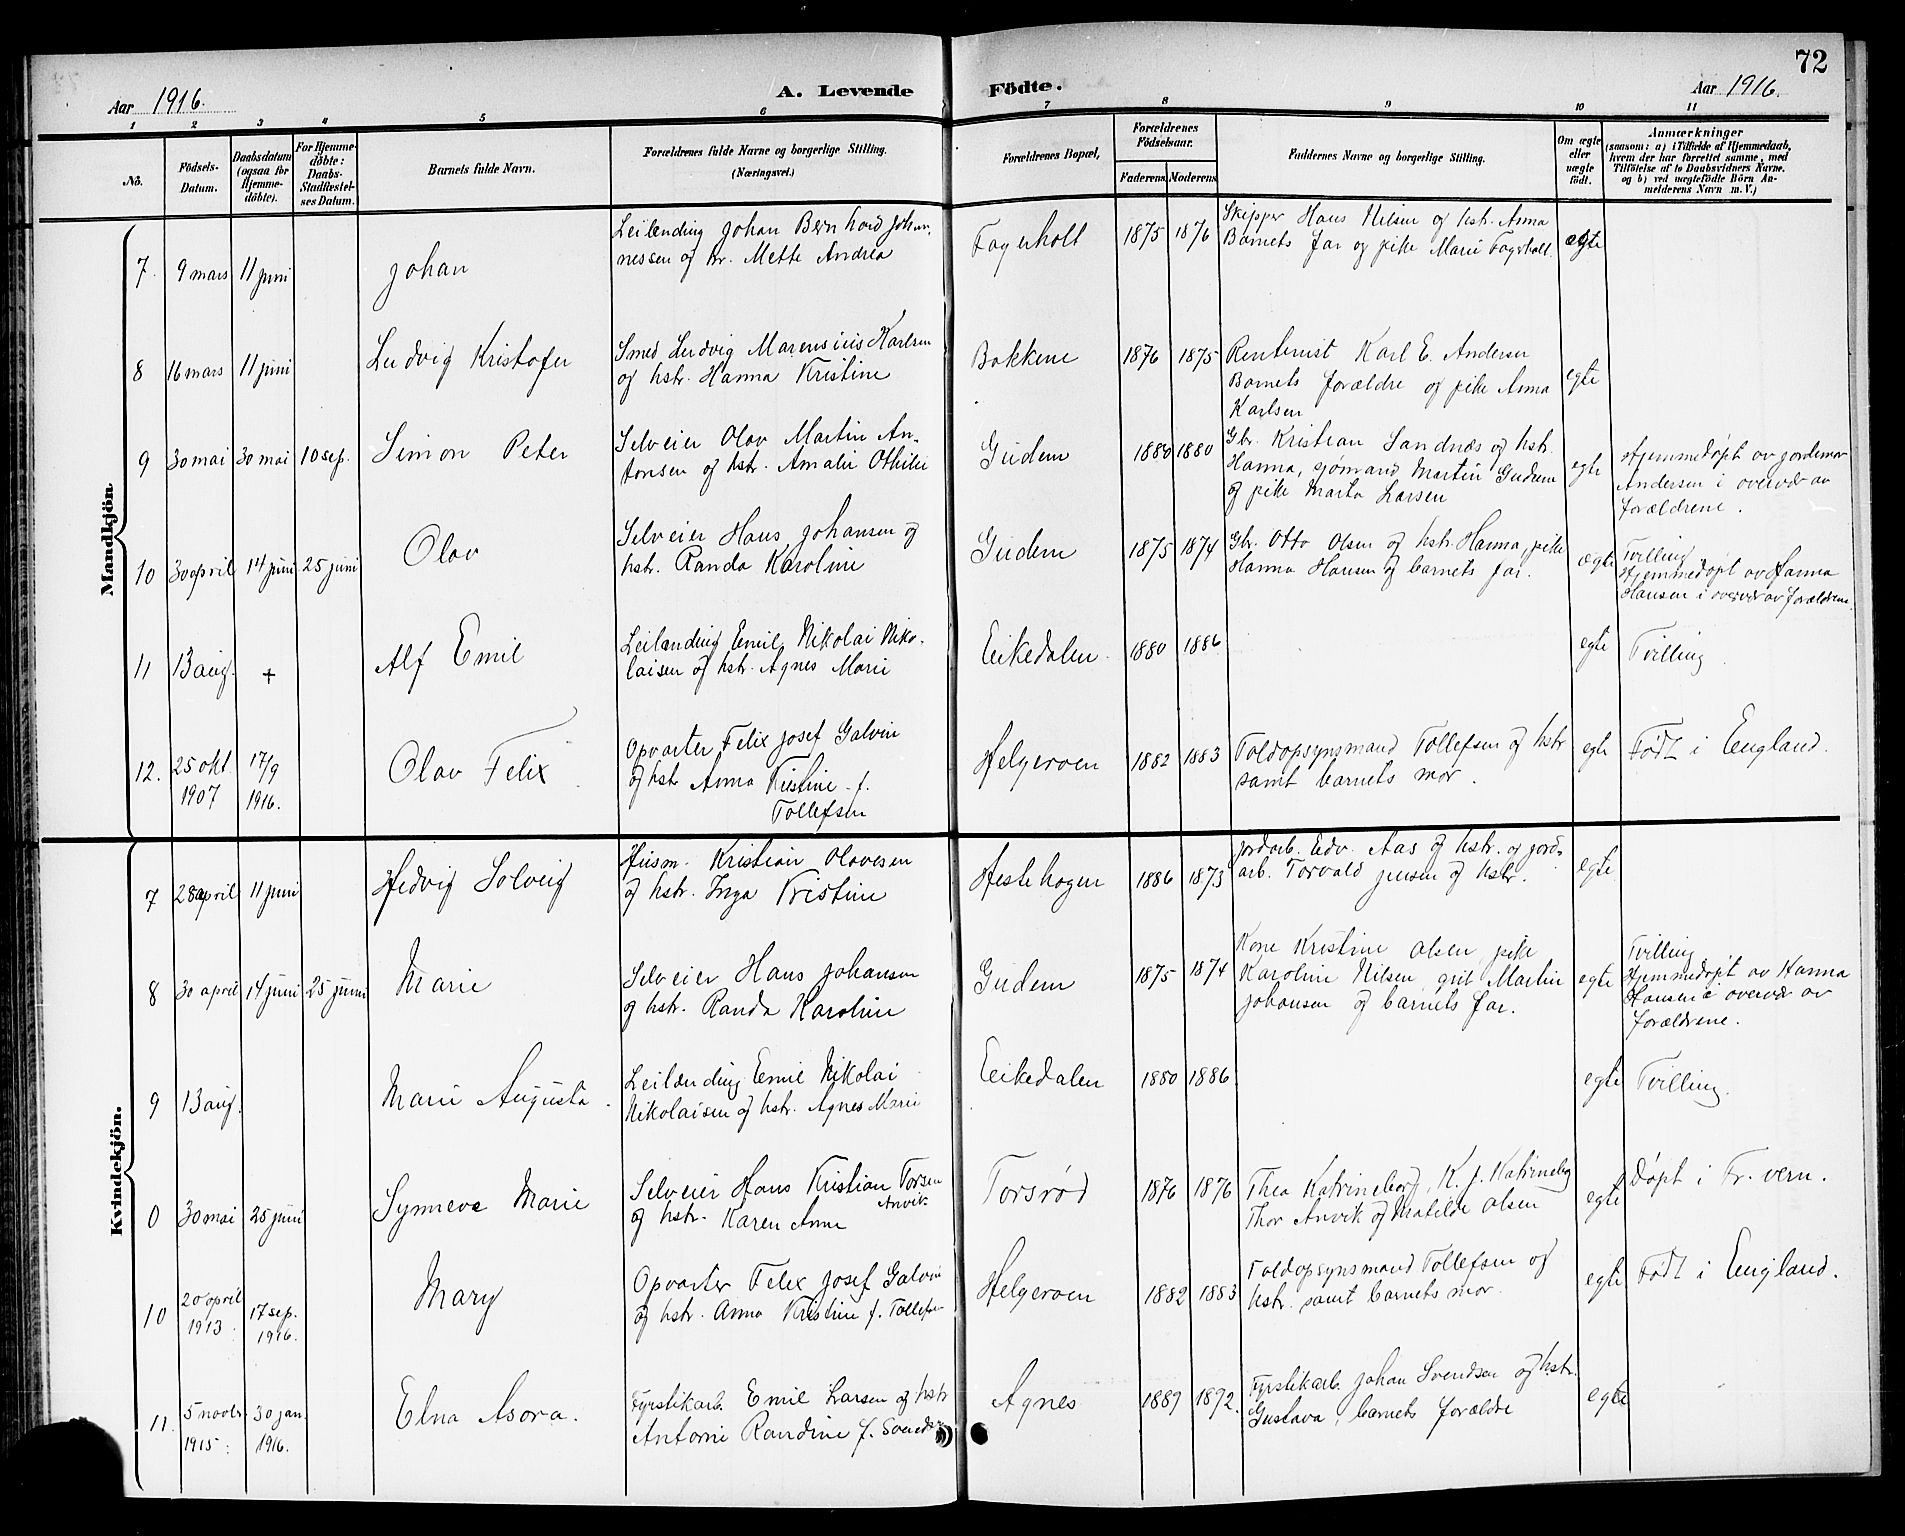 72
Aar 1916.
A. Levende
Födte.
Aar 1916.
1 2 3 4 5 6 7 8 9 10 11
No.
Födsels-
Datum.
Daabsdatum
(ogsaa for
Hjemme-
döbte).
For Hjemme-
döbte:
Daabs-
Stadfæstel-
ses Datum.
Barnets fulde Navn.
Forældrenes fulde Navne og borgerlige Stilling.
(Næringsvei.)
Forældrenes Bopæl,
Forældrenes
Födselsaar.
Faderens
Moderens
Faddernes Navne og borgerlige Stilling.
Om ægte
eller
uægte
födt.
Anmærkninger
(saasom: a) i Tilfælde af Hjemmedaab,
hvem der har forrettet samme, med
Tilföielse af to Daabsvidners Navne,
og b) ved uægtefödte Börn An-
melderens Navn m. V.)
Mandkjön
7. 9 mars 11 juni
Johan
Leilending Johan Bernhard Johan-
nessen og hr. Mette Andrea
Fagerholt
1875 1876
Skipper Hans Nilsen og hstr. Anna
Barnets far og pike Marie Fagerholt
ægte
8 16 mars 11 juni
Ludvig Kristofer
Smed Ludvig Marensius Karlsen
og hstr. Hanna Kristine
Bakkene
1876 1875
Rentenist Karl E. Andersen
Barnets forældre og pike Anna
Karlsen
egte
9 30 mai 30 mai 10 sep.
Simon Peter
Selveier Olav Martin An-
tonsen og hstr. Amalie Othilie
Gudem
1880 1880
Gbr. Kristian Sandnæs og hstr.
Hanna, sjømand Martin Gudem
og pike Marta Larsen
egte
Hjemmedøpt av jordemor
Andersen i overvær av
forældrene.
10 30 april 14 juni 25 juni
Olav
Selveier Hans Johansen og
hstr. Randa Karoline
Gudem
1875 1874
Gbr. Otto Olsen og hstr. Hanna, pike
Hanna Hansen og barnets far.
ægte
Tvilling
Hjemmedøpt av Hanna
Hansen i overvær av forældrene.
11 13 aug. +
Alf Emil
Leilænding Emil Nikolai Niko-
laisen og hstr. Agnes Marie
Eikedalen.
1880 1886
egte
Tvilling
12. 25 okt. 1907
17/9 1916.
Olav Felix
Opvarter Felix Josef Galvin
og hstr Anna Kristine f.
Tollefsen
Helgeroen
1882 1883
Toldopsynsmand Tollefsen og hstr
samt barnets mor.
egte
Født i England.
Kvindekjön.
7 28 april 11 juni
Hedvig Solveig
Husm. Kristian Olavesen
og hstr. Inga Kristine
Hestehagen
1886 1873
Jordarb. Edv. Aas og hstr. og jord-
arb. Torvald Jensen og hstr.
egte
8 30 april 14 juni 25 juni
Marie
Selveier Hans Johansen
og hstr. Randa Karoline
Gudem
1875 1874
Kone Kristine Olsen, pike
Karoline Nilsen, gut Martin
Johansen og barnets far.
egte
Tvilling
Hjemmedøpt av Hanna
Hansen i overvær av
forældrene.
9 13 aug.
Marie Augusta.
Leilænding Emil Nikolai
Nikolaisen og hstr. Agnes Marie
Eikedalen
1880 1886
egte
Tvilling.
0 30 mai 25 juni
Synneva Marie
Selveier Hans Kristian Torsen
Anvik
og hstr. Karen Anne
Torsrød
1876 1876
Thea Katrineborg, K. J. Katrineborg
Thor Anvik og Matilde Olsen
egte
Døpt i Fr. vern.
10 20 april 1913
17 sep. 1916.
Mary
Opvarter Felix Josef Galvin
og hstr. Anna Kristine f. Tollefsen
Helgeroen
1882 1883
Toldopsynsmand Tollefsen og
hstr. samt barnets mor.
egte
Født i England.
11. 5 novbr. 1915
30 jan. 1916.
Elna Asora.
Fyrstikarb. Emil Larsen og hstr
Antonie Randine f. Svendsen
Agnes
1889 1892.
Fyrstikarb. Johan Svendsen og hstr.
Gustava, barnets forældre
egte